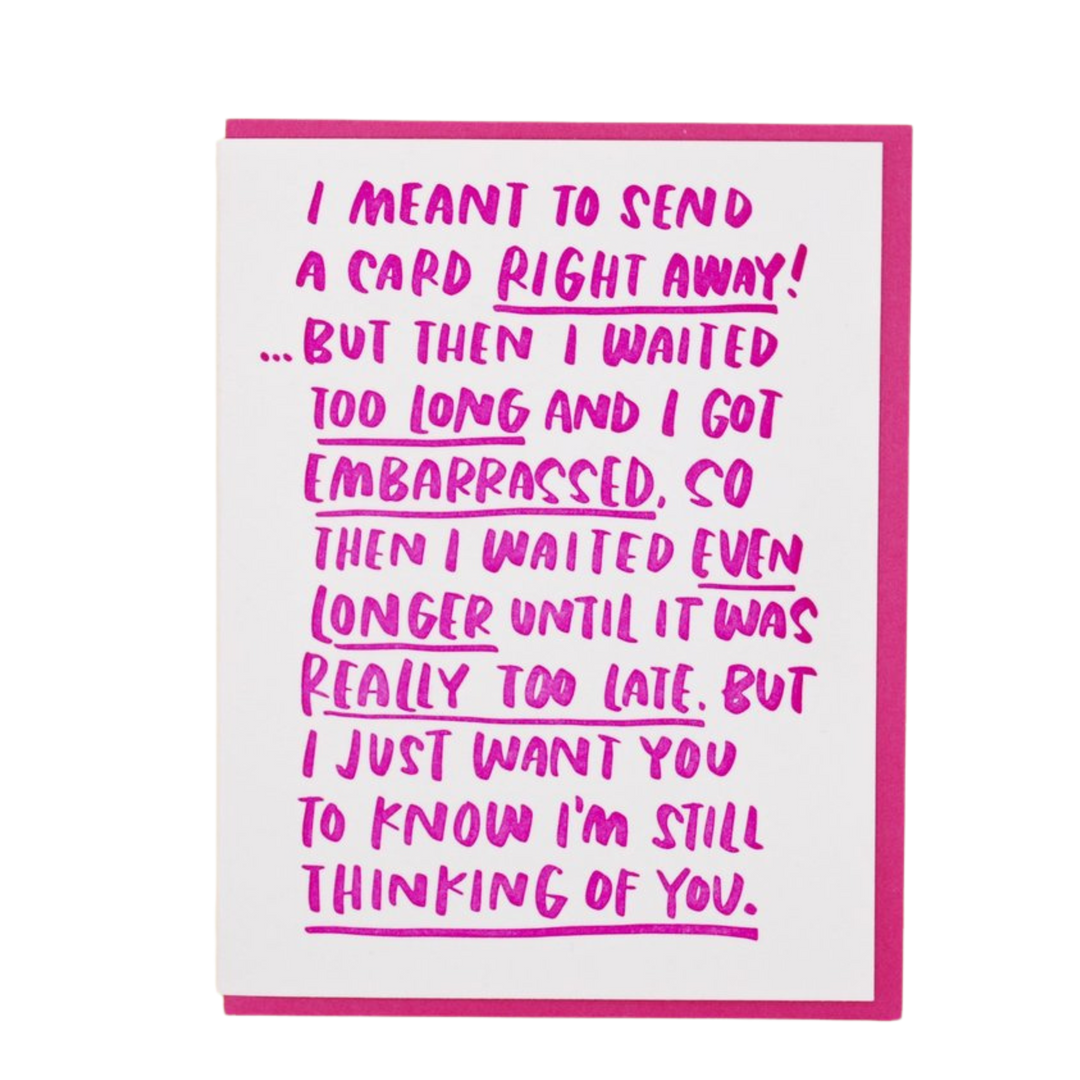 I MEANT TO SEND
A CARD RIGHT AWAY!
...BUT THEN I WAITED
TOO LONG AND I GOT
EMBARRASSED, SO
THEN I WAITED EVEN
LONGER UNTIL IT WAS
REALLY TOO LATE. BUT
I JUST WANT YOU
TO KNOW I'M STILL
THINKING OF YOU.